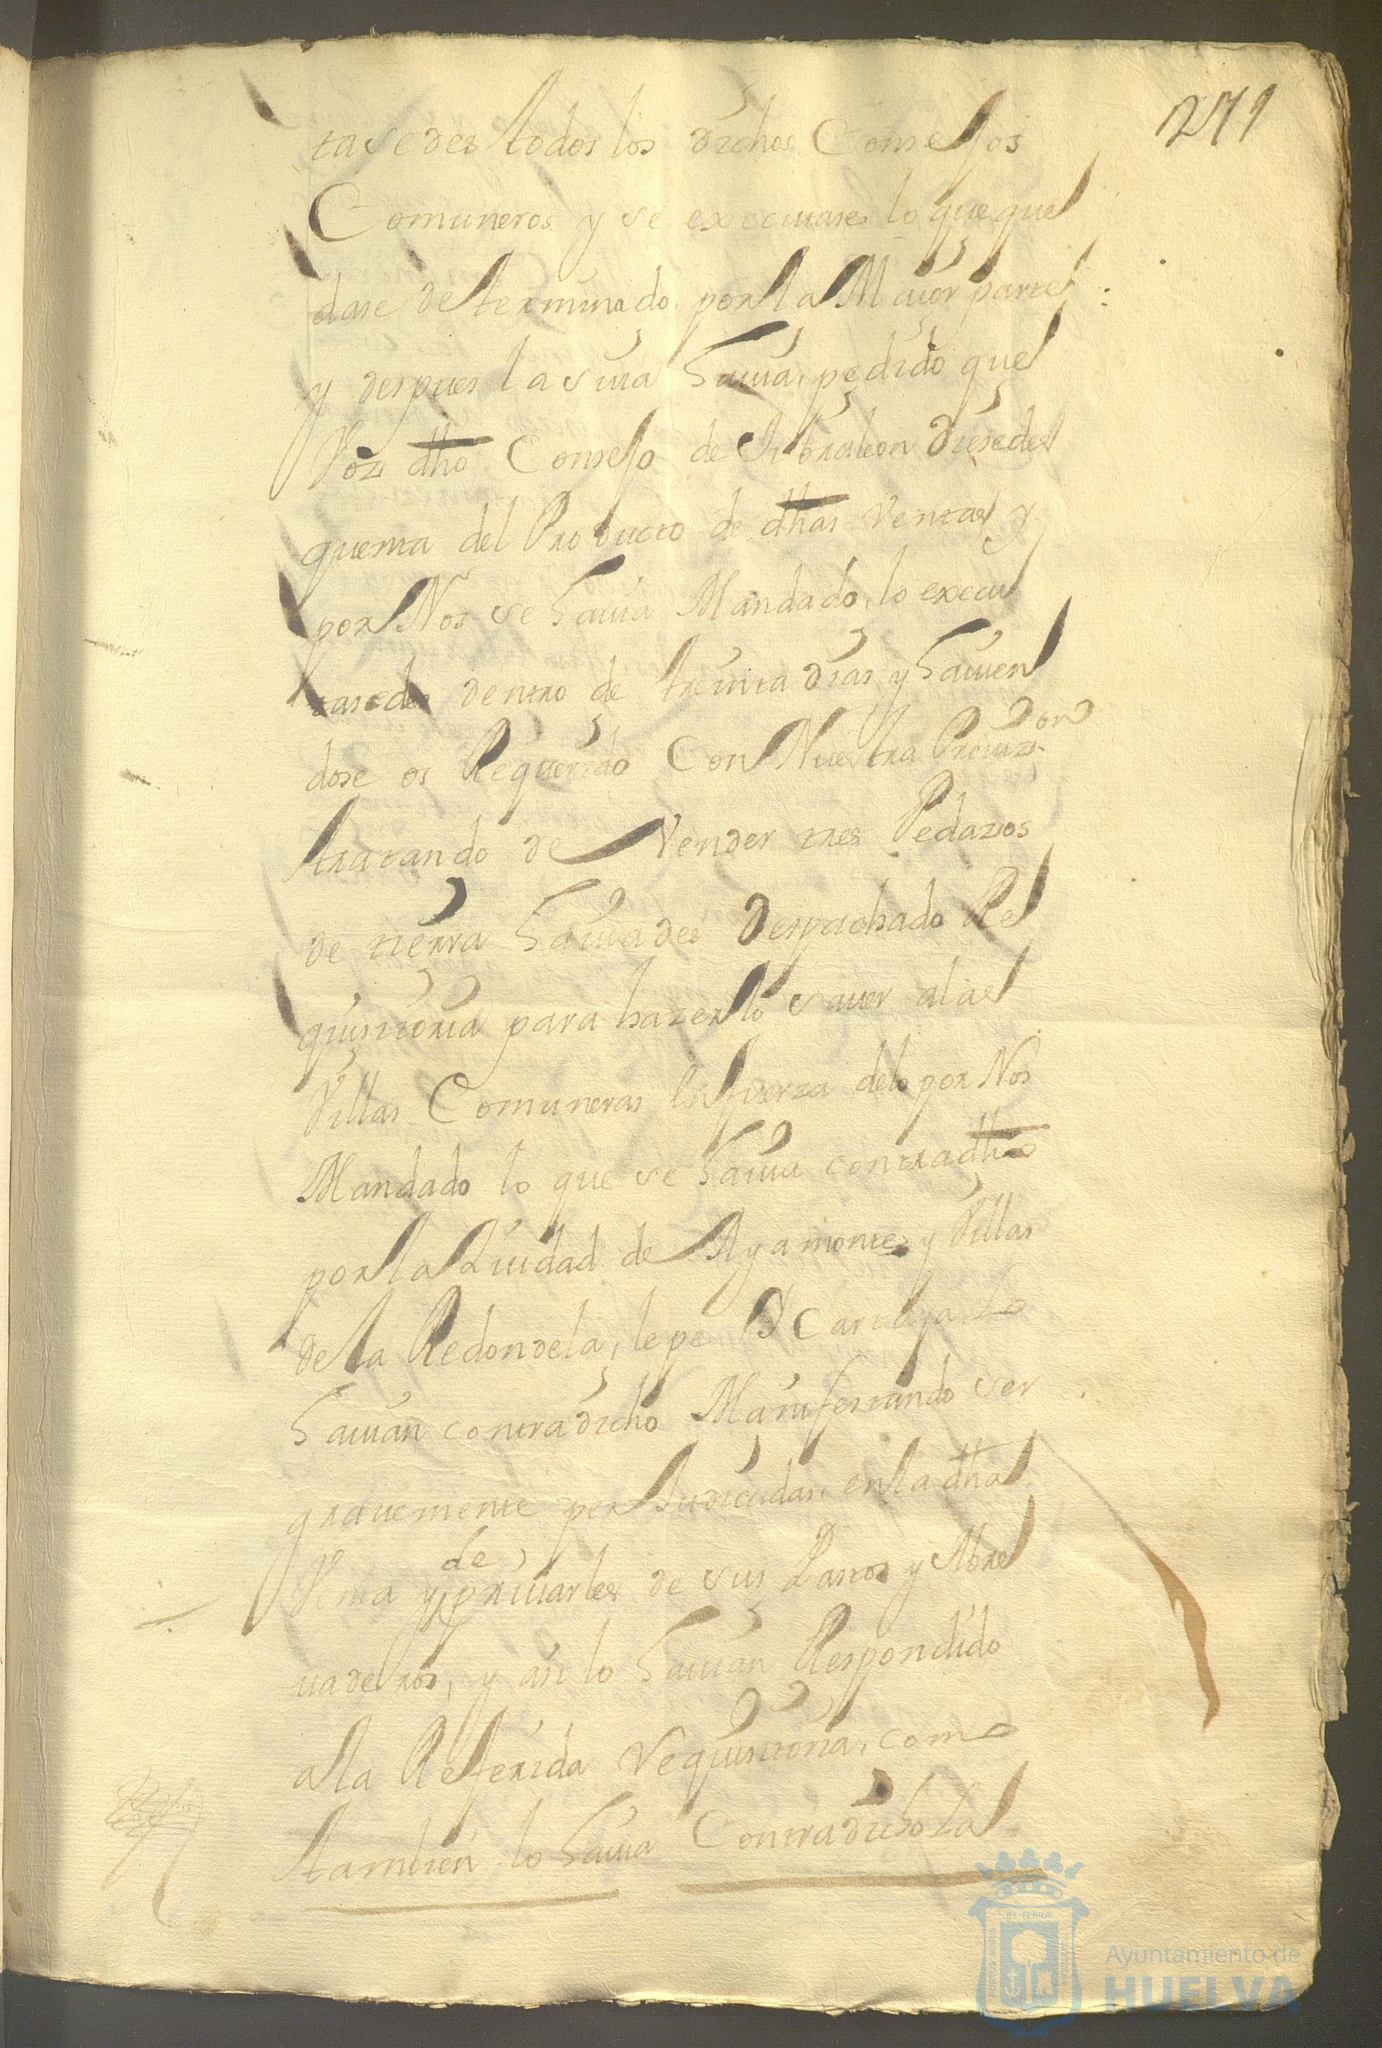 271
tasedes todos los dichos Consejos
Comuneros y se executase lo que que
dase determinado por la Maior parte
y despues la suia hauia pedido que
por dho Consejo de Jibraleon diesedes
quenta del Producto de dhas Ventas y
por Nos se hauia Mandado, lo execu
tasedes dentro de treinta dias y hauien
dose os Requerido Con Nuestra Prouizion
tratando de Vender tres Pedazos
de tierra hauiades Despachado Re
quisitoria para hazerlo sauer alas
Villas Comuneras en fuerza delo por Nos
Mandado lo que se hauia contradho
por la Ziudad de Ayamonte y Villas
de la Redondela, lepe Y Cartaya Lo
hauian contradicho Manifestando ser
grauemente perJudicadas en la dha
Venta y de priuarles de sus Pastos y Abre
uaderos, y asi lo hauian Respondido
ala Referida requisitoria, como
tambien lo hauia Contradicho La
Ayuntamiento de
HUELVA